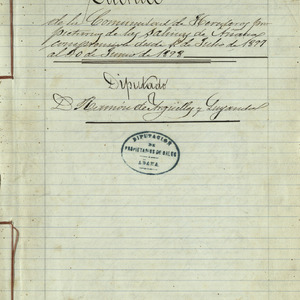 de la Comunidad de Herederos pro
pietarios de las Salinas de Añana
correspondiente desde 1º de Julio de 1897
al 30 de Junio de 1898
Diputado
D. Ramón de y
DIPUTACION
DE
PROPIETARIOS DE SALES
AÑANA